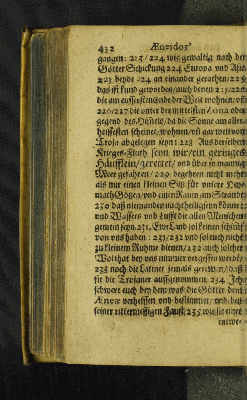 432 Æneidos
gangen: 223/224 wie gewaltig nach der
Götter Schickung 224 Europa und Asia
223 beyde 224 an einander gerathen/225
das ist kund worden/auch denen
die am eussersten Ende der Welt wohnen/
226/227 die unter der mittelsten Zona oder
gegend des Himels/da die Sonne am aller
heissesten scheinet/wohnen/uñ gar weit von
Troja abgelegen seyn: 228 Aus derselben
Krieges-Fluth seyn wir/ein geringes
Häufflein/gerettet/und über so manniges
Meer gefahren/229 begehren nicht mehr/
als nur einen kleinen Sitz für unsere
Götter/und einen Raum am Strande/
230 daß niemanden nachtheilig seyn könne:
und Wassers und Lufft die allen Menschen
gemein seyn. 231. Ewr Land sol keinen schimpf
von uns haben: 231/232 und sol euch nicht
zu kleinem Ruhme dienen/232 auch solcher
Wolthat bey uns nimmer vergessen werde/
233 noch die Latiner jemals gerewen/daß
sie die Trojaner auffgenommen. 234 Jch
schwere euch bey dem was die Götter dem
Æneæ verheissen und bestimmet/und bey
seiner rittermessigen Faust/235 wie sie einer
entwe-